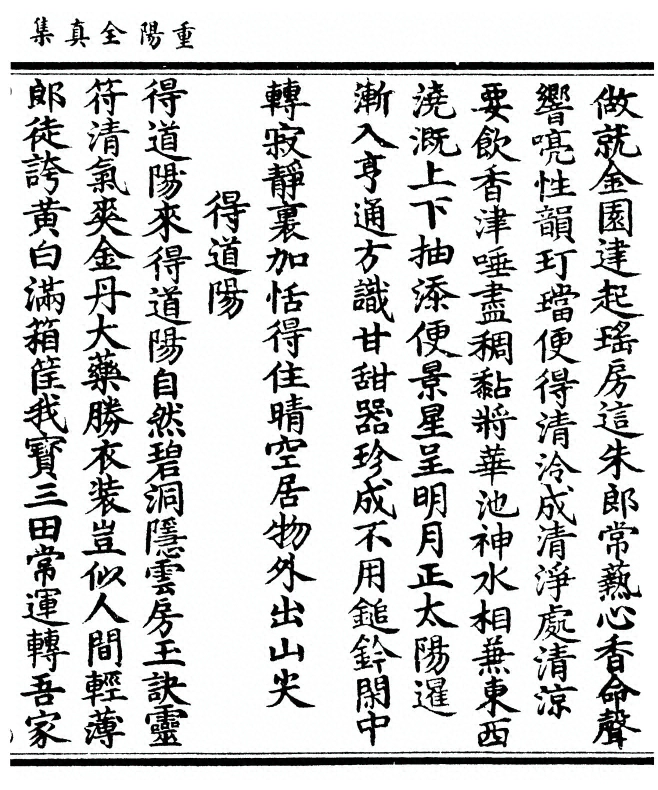 重陽全真集
做就金園建起瑤房這朱郎常爇心香命聲
響喨性韻玎璫便得清泠成清淨處清涼
要飲香津唾盡稠黏將華池神水相兼東西
澆溉上下抽添便景星呈明月正太陽暹
漸入亨通方識甘甜器珍成不用鎚鈐閑中
轉寂靜裏加恬得住晴空居物外出山尖
得道陽
得道陽來得道陽自然碧洞隱雲房玉訣靈
符清氣爽金丹大藥勝衣裝豈似人間輕薄
郎徒誇黃白滿箱筐我寶三田常運轉吾家